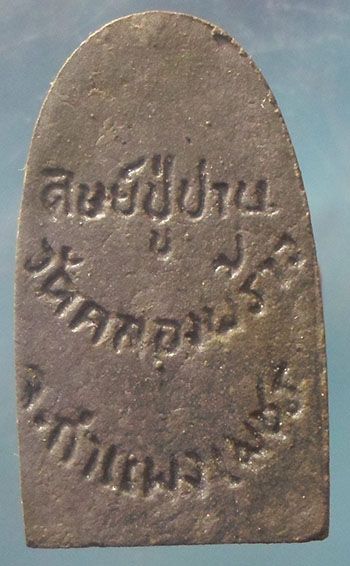 ศิษย์ปู่ปาน
วัดคลอง
จ.กำแพงเพชร